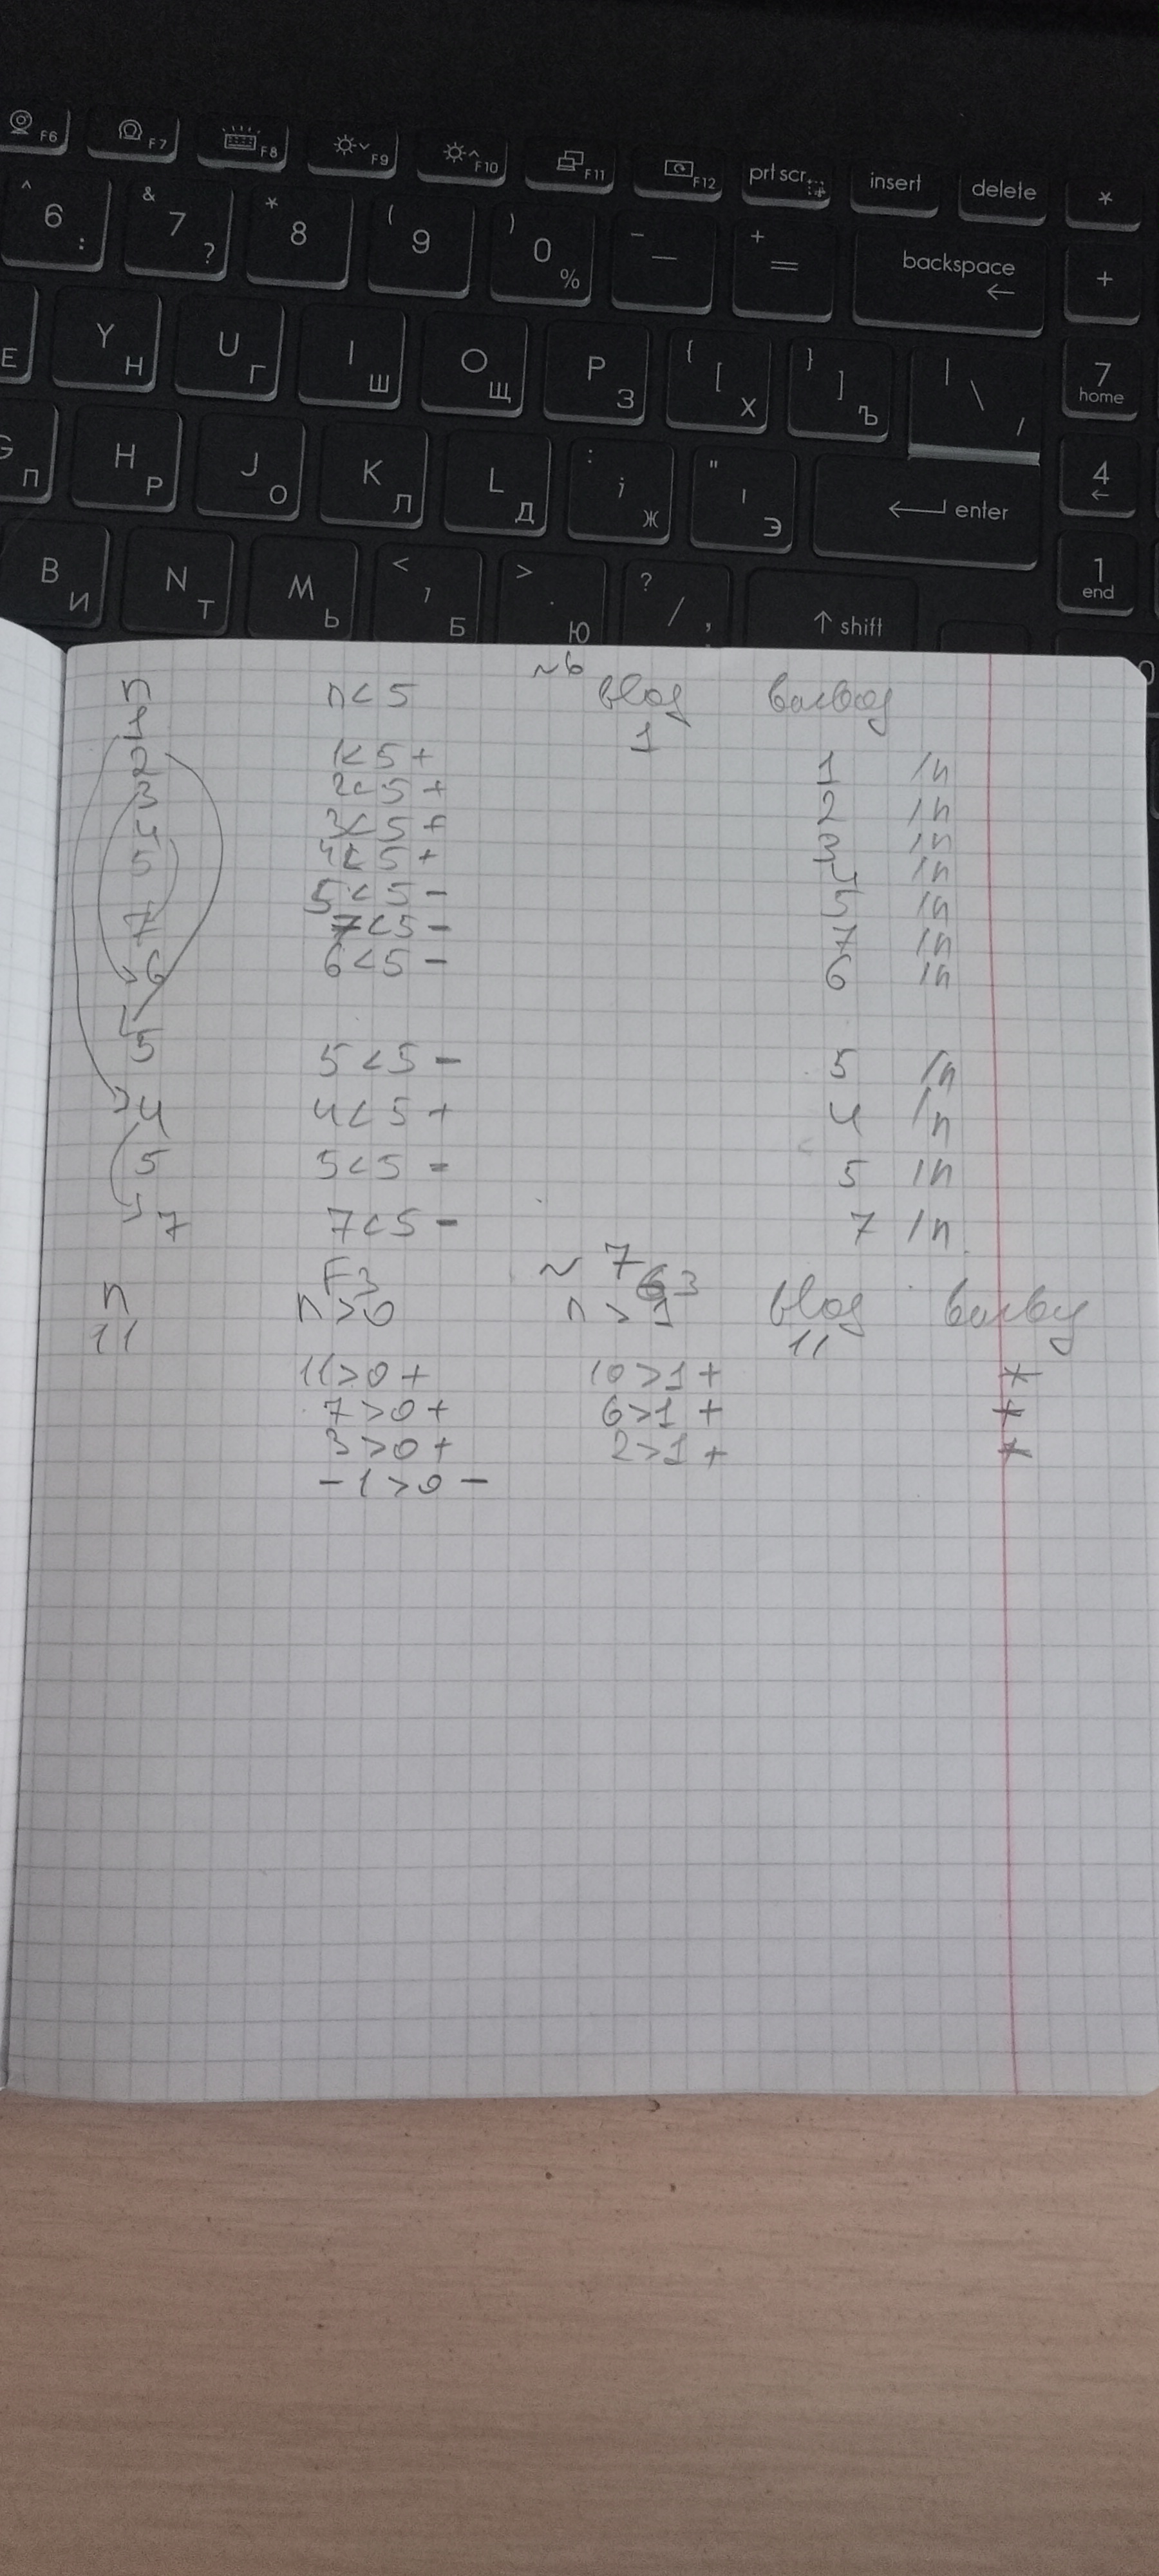 F6 F7 F8 F9 F10 F11 F12 prt scr insert delete *
^ 6 : & 7 ? * 8 ( 9 ) 0 % - — + = backspace ← +
E Y Н U Г I Ш O Щ P З { [ Х } ] Ъ | \ / 7 home
G П H Р J О K Л L Д : ; Ж " ' Э ← enter 4 ←
B И N Т M Ь < , Б > . Ю ? / , ↑ shift 1 end
~6
n n<5 ввод вывод
1 1
2 1<5 + 1 /n
3 2<5 + 2 /n
4 3<5 + 3 /n
5 4<5 + 4 /n
5<5 - 5 /n
7 7<5 - 7 /n
6 6<5 - 6 /n
5 5<5 - 5 /n
4 4<5 + 4 /n
5 5<5 - 5 /n
7 7<5 - 7 /n
~7
F3 G3
n n>0 n>1 ввод вывод
11 11
11>0 + 10>1 + *
7>0 + 6>1 + *
3>0 + 2>1 + *
-1>0 -